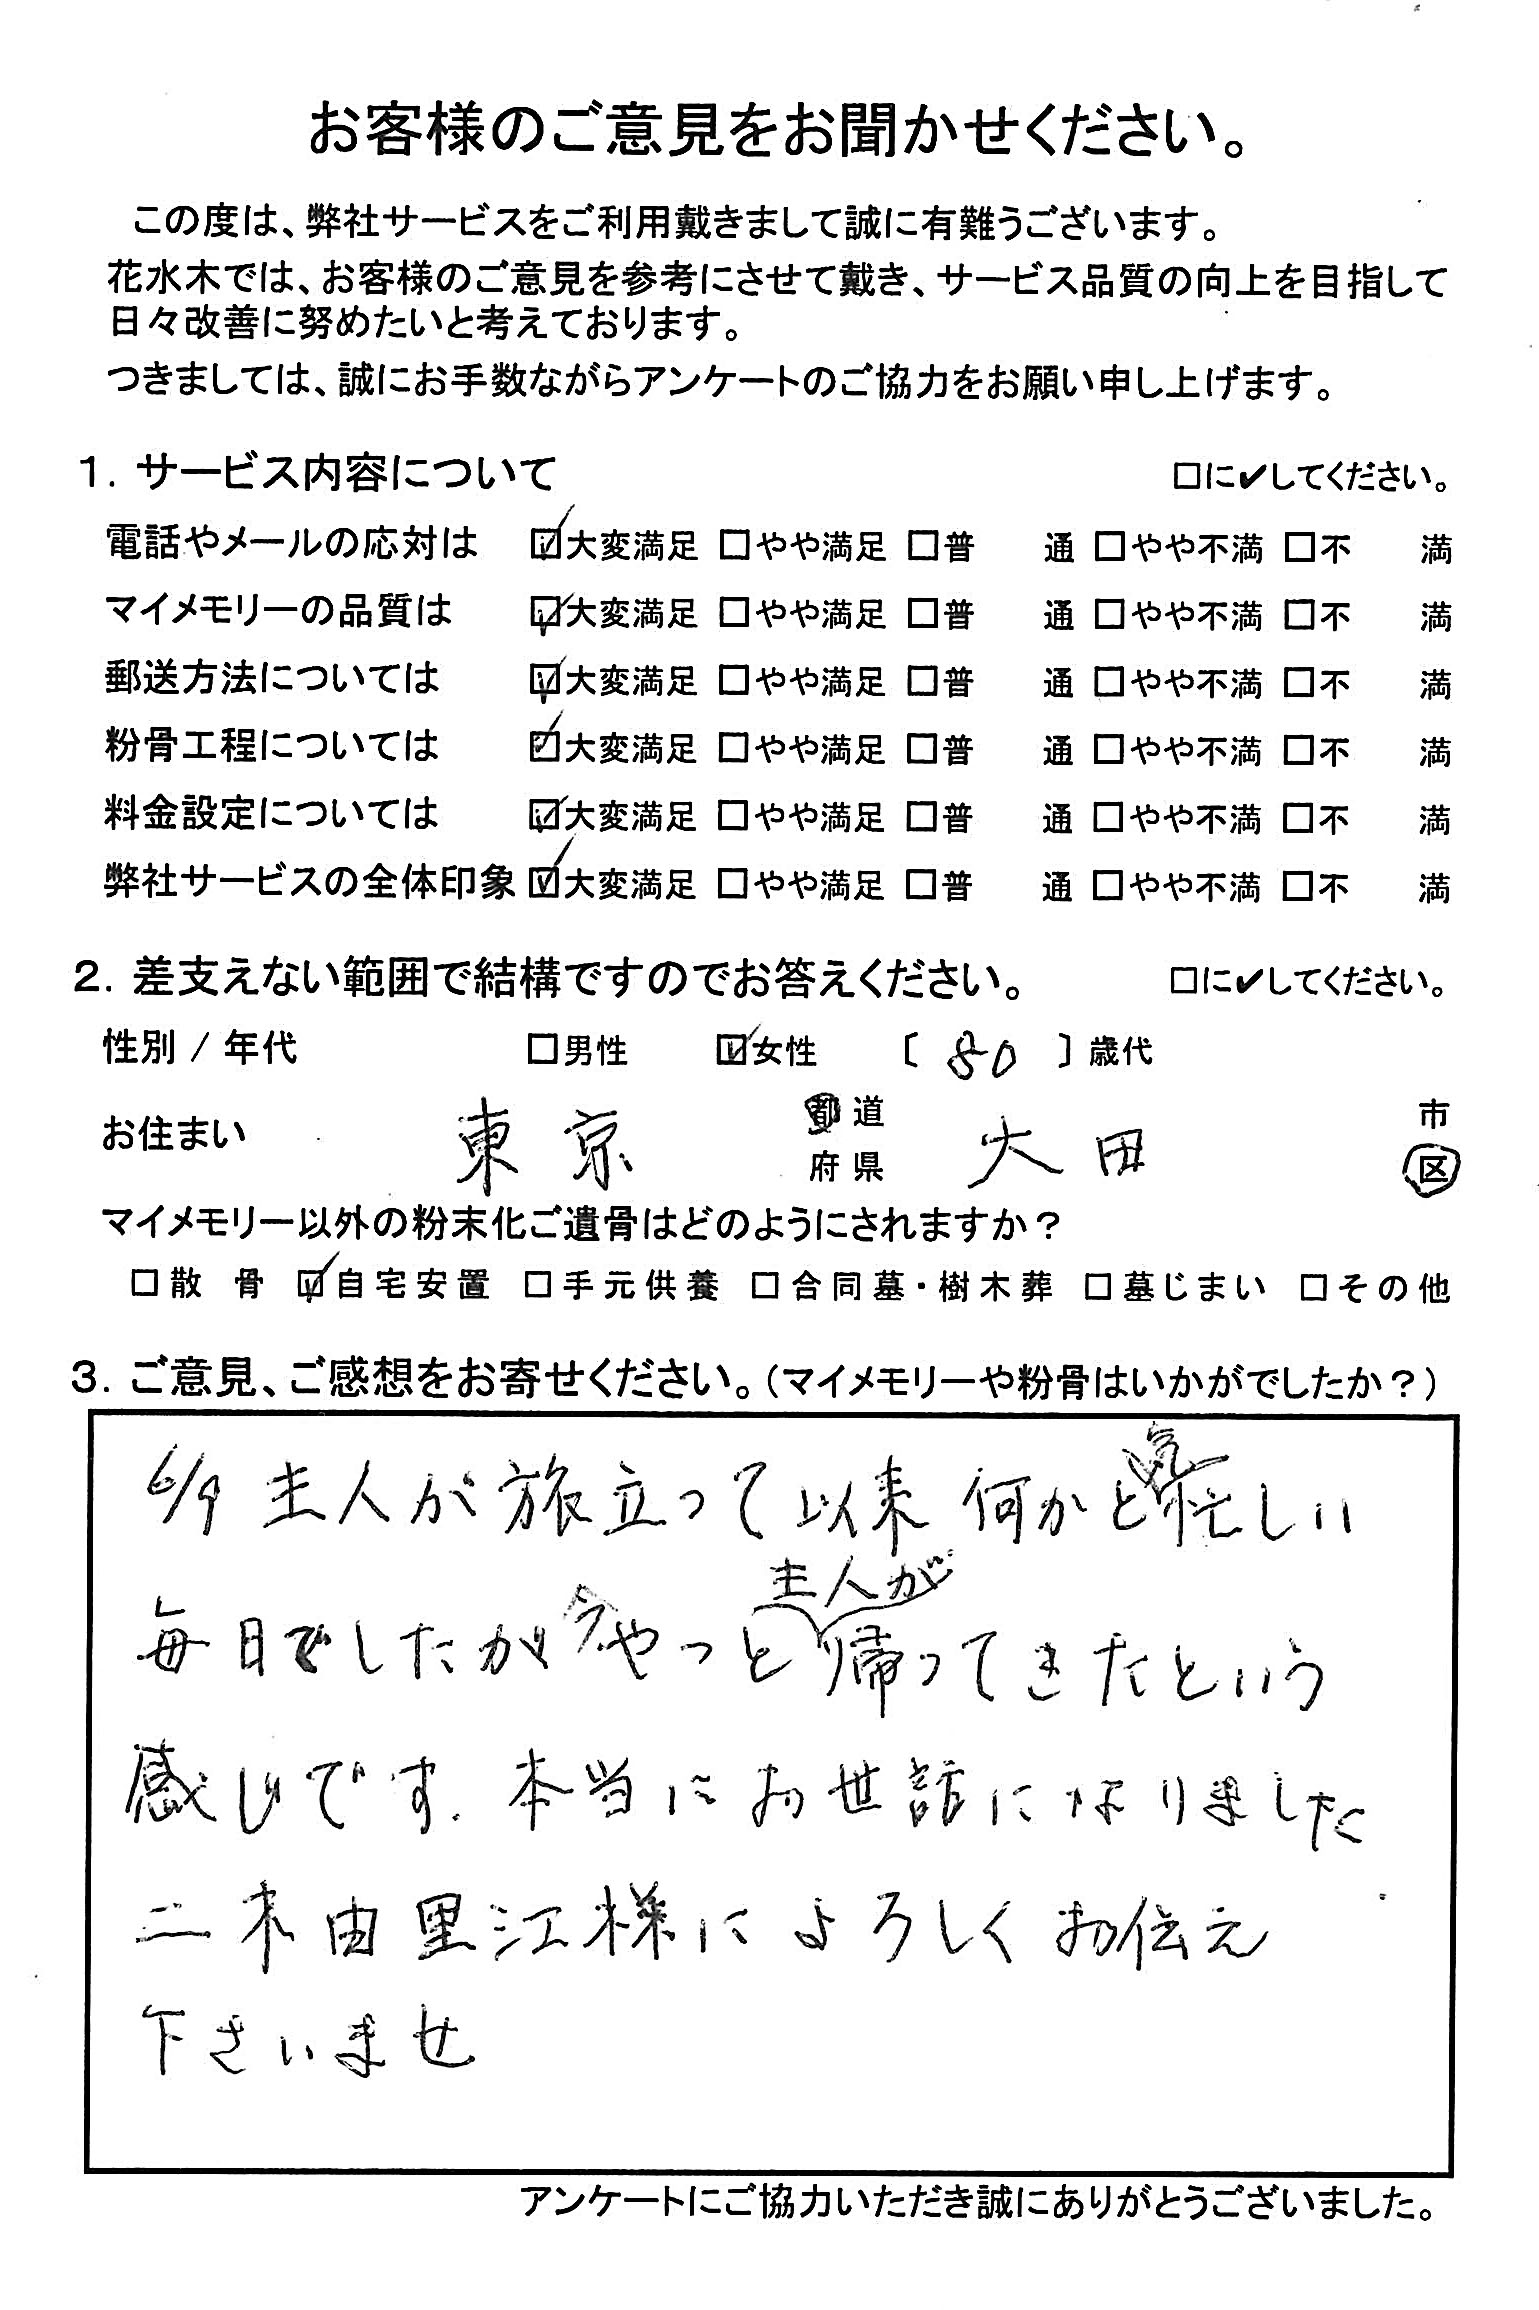 お客様のご意見をお聞かせください。
この度は、弊社サービスをご利用戴きまして誠に有難うございます。
花水木では、お客様のご意見を参考にさせて戴き、サービス品質の向上を目指して
日々改善に努めたいと考えております。
つきましては、誠にお手数ながらアンケートのご協力をお願い申し上げます。
1. サービス内容について □に✔してください。
電話やメールの応対は ☑大変満足 □やや満足 □普 通 □やや不満 □不 満
マイメモリーの品質は ☑大変満足 □やや満足 □普 通 □やや不満 □不 満
郵送方法については ☑大変満足 □やや満足 □普 通 □やや不満 □不 満
粉骨工程については ☑大変満足 □やや満足 □普 通 □やや不満 □不 満
料金設定については ☑大変満足 □やや満足 □普 通 □やや不満 □不 満
弊社サービスの全体印象 ☑大変満足 □やや満足 □普 通 □やや不満 □不 満
2. 差支えない範囲で結構ですのでお答えください。 □に✔してください。
性別 / 年代 □男性 ☑女性 〔 80 〕歳代
お住まい 東京 都道府県 大田 市区
マイメモリー以外の粉末化ご遺骨はどのようにされますか？
□散 骨 ☑自宅安置 □手元供養 □合同墓・樹木葬 □墓じまい □その他
3. ご意見、ご感想をお寄せください。（マイメモリーや粉骨はいかがでしたか？）
6/9 主人が旅立って以来 何かと気忙しい
毎日でしたが今やっと主人が帰ってきたという
感じです. 本当にお世話になりました
二木由里江様によろしくお伝え
下さいませ
アンケートにご協力いただき誠にありがとうございました。